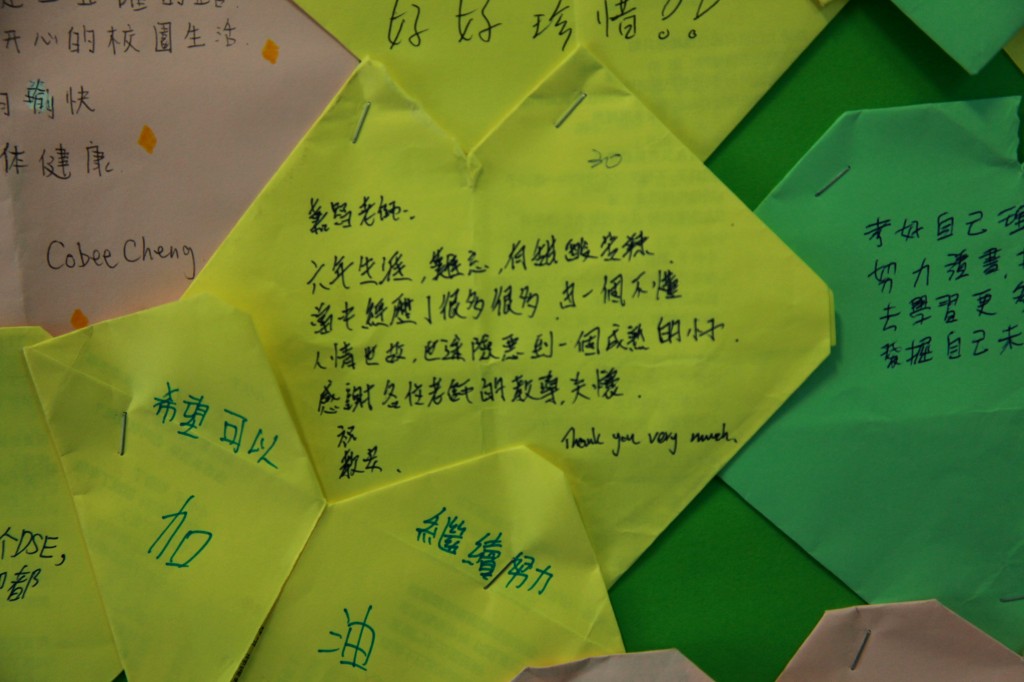 開心的校園生活
愉快
体健康
Cobee Cheng
好好珍惜!!
20
老師:
六年生涯,難忘,有甜酸苦辣.
當中經歷了很多很多,由一個不懂
人情世故,也逐漸到一個成熟的小子.
感謝各位老師的教導,關懷.
祝
教安.
Thank you very much.
考好自己理
努力讀書,
去學習更多
發掘自己未
希望可以
加
繼續努力
油
个DSE,
都